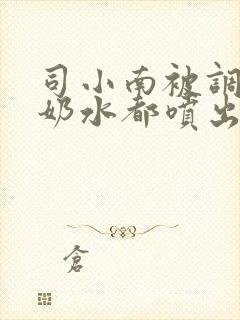 司小南被調
奶水都噴出
倉